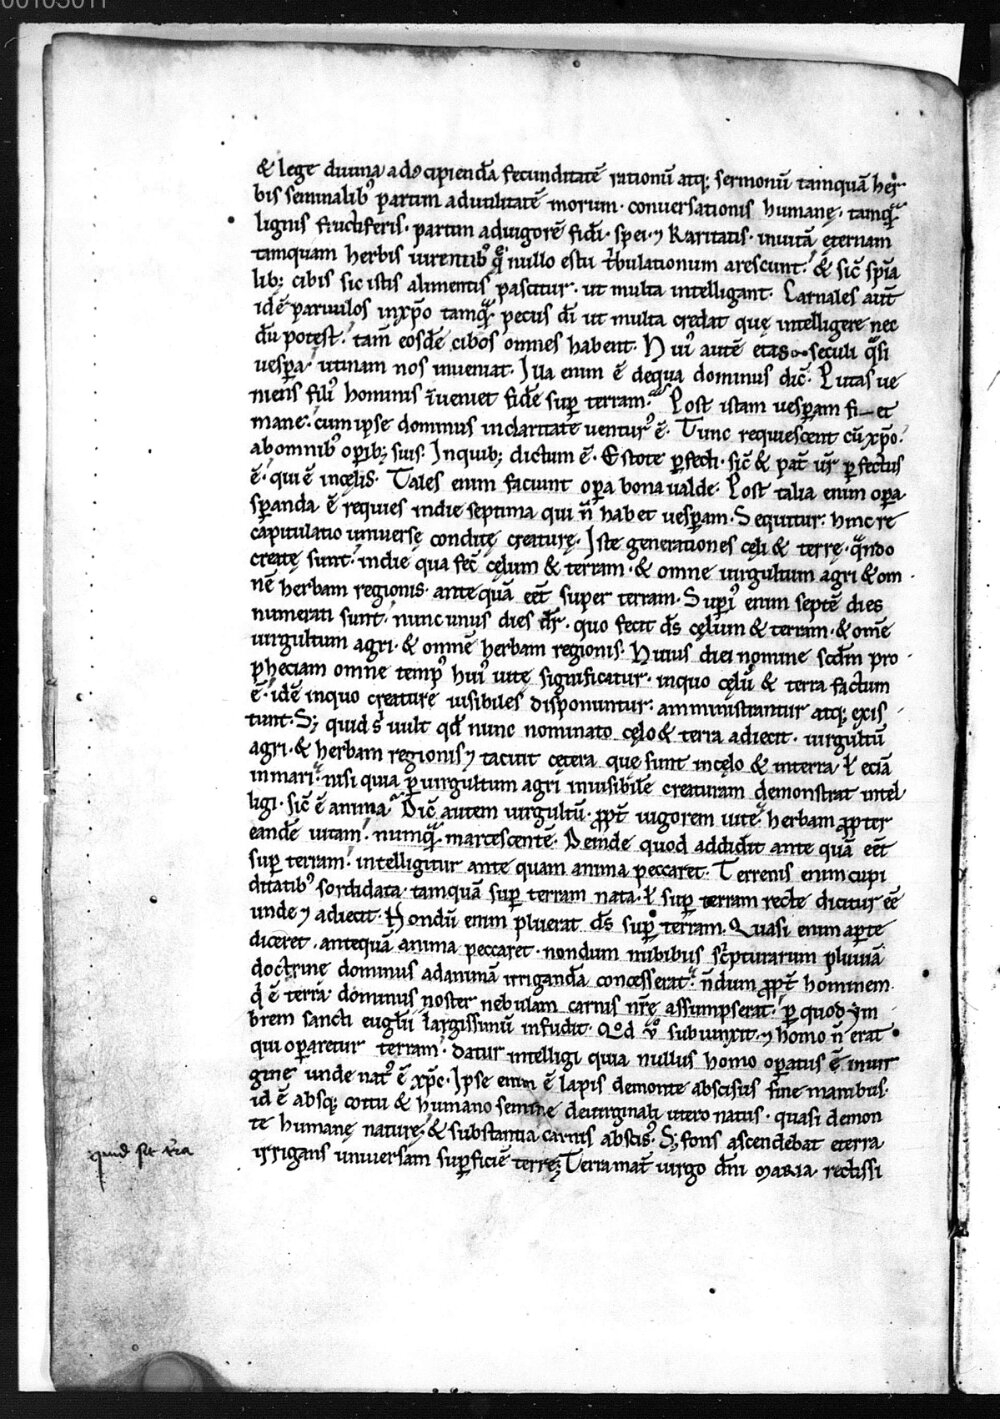 00103011
& lege diuina ad cipienda̅ fecunditate̅ rationu̅ atq; sermonu̅ tamqua̅ her
bis seminalib᾽ partim adutilitate̅ morum· conuersationis humanę· tamq̅ͣ
lignis fructiferis· partim aduigore̅ fidi̅· spei·⁊ karitatis· inuita̅ ęternam
tamquam herbis uirentib᾽ q̅ nullo estu t̅bulationum arescunt· & sic̅ sp̅ia
lib; cibis sic istis alimentis pascitur· ut multa intelligant· Carnales aut̅
ide̅ paruulos inxp̅o tamq̅ͣ pecus di̅ ut multa credat quę intelligere nec
du̅ potest· tam̅ eosde̅ cibos omnes habent· Hui᾽ aute̅ etas seculi q̅si
uesp̅a utinam nos inueniat· Illa enim e̅ dequa dominus dic̅· Putas ue
niens fili᾽ hominis i̅ueniet fide̅ sup̅ terram· Post istam uesp̅am fi—et
mane· cum ipse dominus inclaritate uentur᾽ e̅· Tunc requiescent cu̅ xp̅o·
abomnib᾽ op̅ib; suis· Inquib; dictum e̅· Estote p̅fecti· sic̅ & pat̅ ur̅ p̅fectus
e̅· qui e̅ incęlis· Tales enim faciunt op̅a bona ualde· Post talia enim op̅a
sp̅anda e̅ requies indie septima qui n̅ habet uesp̅am· Sequitur· hinc re
capitulatio uniuersę conditę creaturę· Iste generationes cęli & terrę· q̅ndo
creatę sunt· indie qua fec̅ cęlum & terram· & omne uirgultum agri & om
ne̅ herbam regionis· ante qua̅ ee̅t super terram· Sup̅i᾽ enim septe̅ dies
numerati sunt· nunc unus dies dr̅· quo fecit ds̅ cęlum & terram· & ome̅
uirgultum agri· & omne̅ herbam regionis· Huius diei nomine scd̅m pro
pheciam omne temp᾽ hui᾽ uitę significatur· inquo cęlu̅ & terra factum
e̅· ide̅ inquo creature uisibiles disponuntur· amministrantur atq; exis
tunt· S; quid s᾽ uult qd̅ nunc nominato cęlo & terra adiecit· uirgultu̅
agri· & herbam regionis ⁊ tacuit cętera que sunt incęlo & interra· ł ecia̅
inmari· nisi quia p̅ uirgultum agri inuisibile̅ creaturam demonstrat intel
ligi· sic̅ e̅ anima· Dic̅ autem uirgultu̅ p̅p̅t̅ uigorem uitę· herbam p̅pter
eande̅ uitam· numq̅ͣ marcescente̅· Deinde quod addidit ante qua̅ ee̅t
sup̅ terram· intelligitur ante quam anima peccaret· Terrenis enim cupi
ditatib᾽ sordidata· tamqua̅ sup̅ terram nata· ł sup̅ terram recte dicitur ee̅
unde ⁊ adiecit· Nondu̅ enim pluerat ds̅ sup̅ terram· Quasi enim ap̅te
diceret· antequa̅ anima peccaret· nondum nubibus sc̅pturarum pluuia̅
doctrinę dominus ad anima̅ irriganda̅ concesserat· n̅dum p̅p̅t̅ hominem
q̅ e̅ terra̅ dominus noster nebulam carnis nr̅ę assumpserat· p̅ quod ym
brem sancti eugl̅ii largissimu̅ infudit· Qd̅ v᾽ subiunxit· ⁊ homo n̅ erat
qui op̅aretur terram· datur intelligi quia nullus homo op̅atus e̅ inuir
gine unde nat᾽ e̅ xp̅c· Ipse enim e̅ lapis demonte abscisus sine manibus·
id e̅ absq; coitu & humano semine deuirginali utero natus· quasi demon
te humanę naturę & substantia carnis abscis᾽· S; fons ascendebat eterra
irrigans uniuersam sup̅ficie̅ terrę; Terra mat̅ uirgo dn̅i MARIA rectissi
quid sit